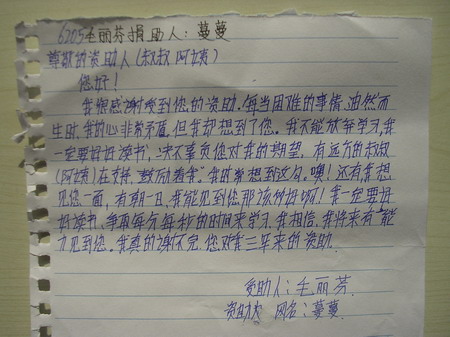 6205毛丽芬捐助人：蔓蔓
尊敬的资助人(叔叔 阿姨)
您好！
我很感谢受到您的资助．每当困难的事情油然而
生时，我的心非常矛盾，但我却想到了您．我不能放弃学习，我
一定要好好读书，决不辜负您对我的期望，有远方的叔叔
(阿姨)在支持、鼓励着我"我时常想到这句．噢！还有我想
见您一面，有朝一日，我能见到您那该何好啊！我一定要好
好读书，争取每分每秒的时间来学习，我相信，我将来有"能
力见到您．我真的谢不完，您对我三年来的资助．
受助人：毛丽芬
资助人 网名：蔓蔓